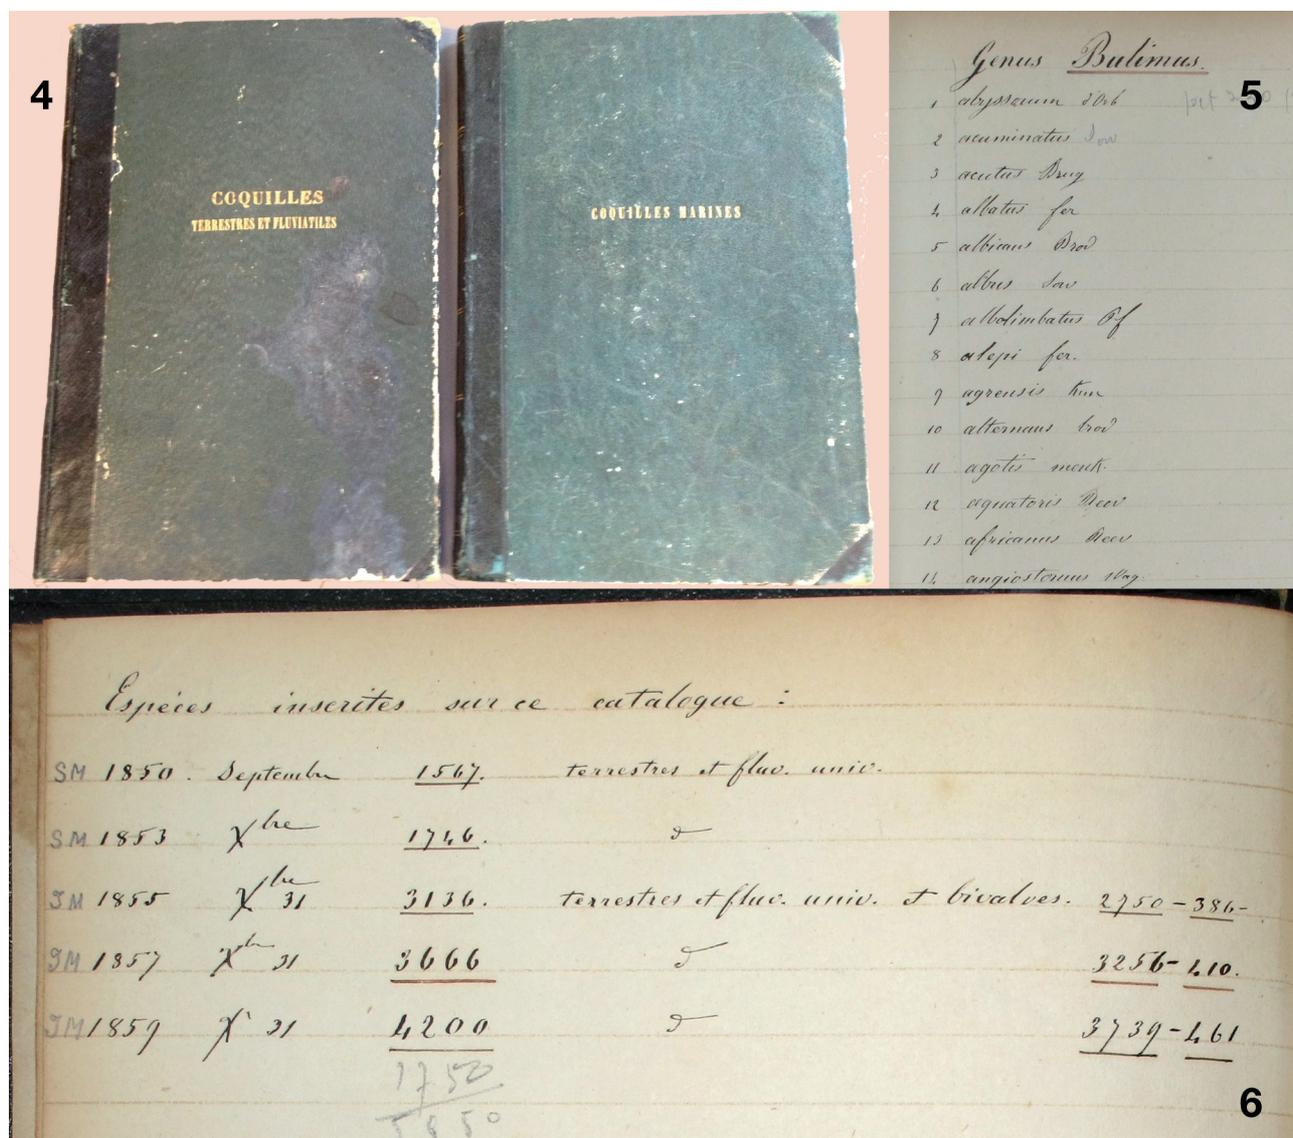 4
COQUILLES
TERRESTRES ET FLUVIATILES
COQUILLES MARINES
5
Genus Bulimus.
1 abyssorum d'Orb
2 acuminatus Sow
3 acutus Brug
4 albatus fer
5 albicans Brod
6 albus Sow
7 albolimbatus Pf
8 alepi fer.
9 agrensis Kur
10 alternans brod
11 agotis menk.
12 aquatoris Reev
13 africanus Reev
14 angiostomus Wag.
Espéces inscrites sur ce catalogue :
SM 1850. Septembre 1567. terrestres et fluv. univ.
SM 1853 Xbre 1746. d
JM 1855 Xbre 31 3136. terrestres et fluv. univ. et bivalves. 2750-386-
JM 1857 Xbre 31 3666 d 3256-410.
JM 1859 X 31 4200 d 3739-461
1750
6